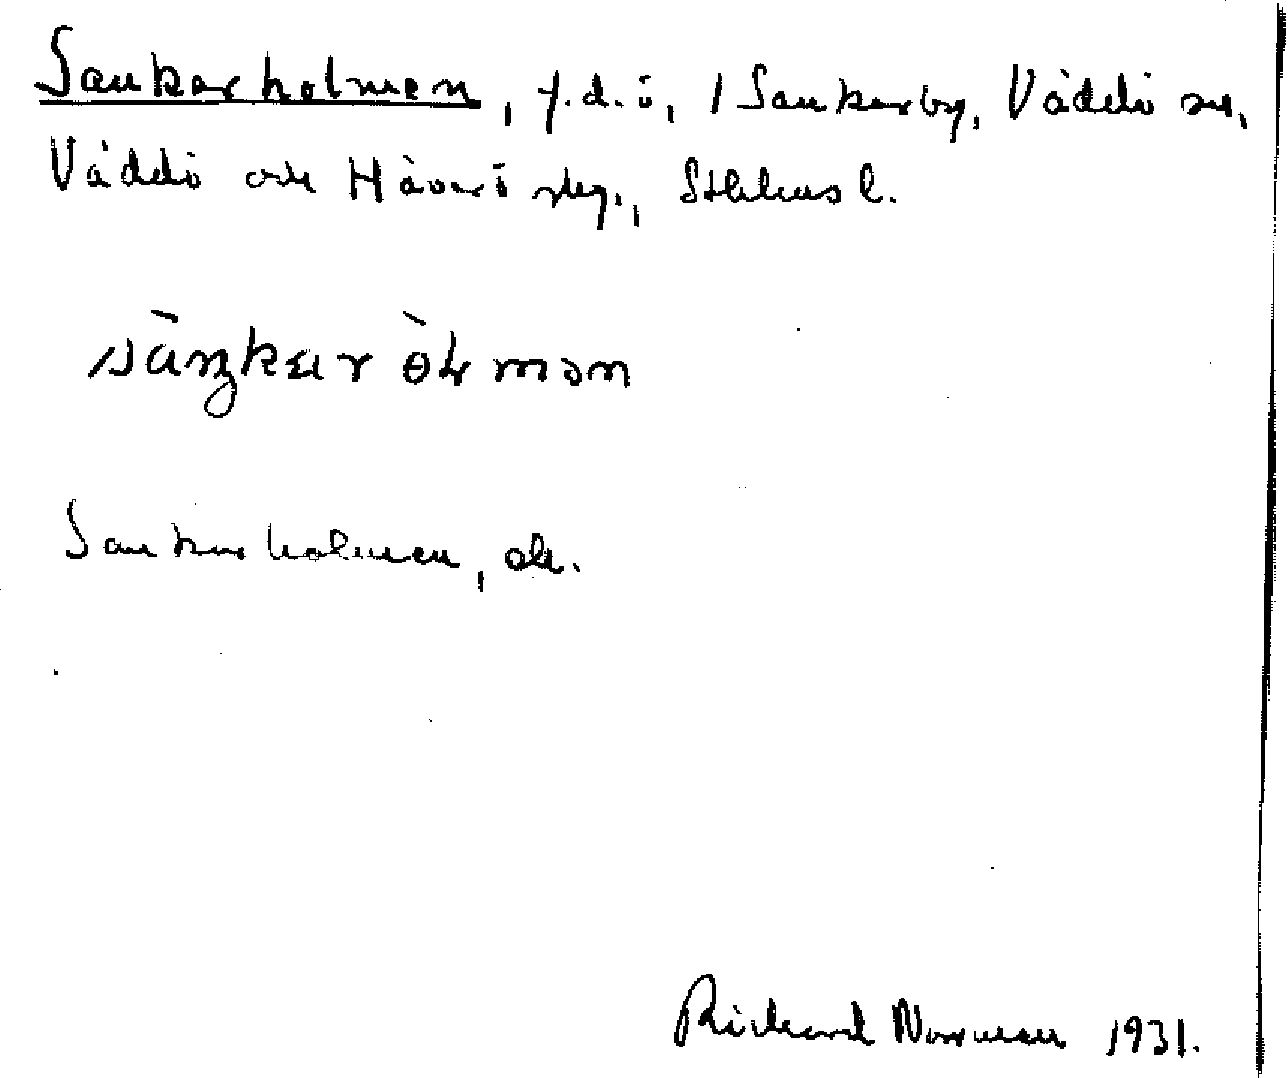 Sankarholmen, f.d. ö, i Sankarby, Väddö sn,
Väddö och Häverö skg., Sthlms l.
sàŋkaròlmən
Sankarholmen, ek.
Richard Norrman 1931.